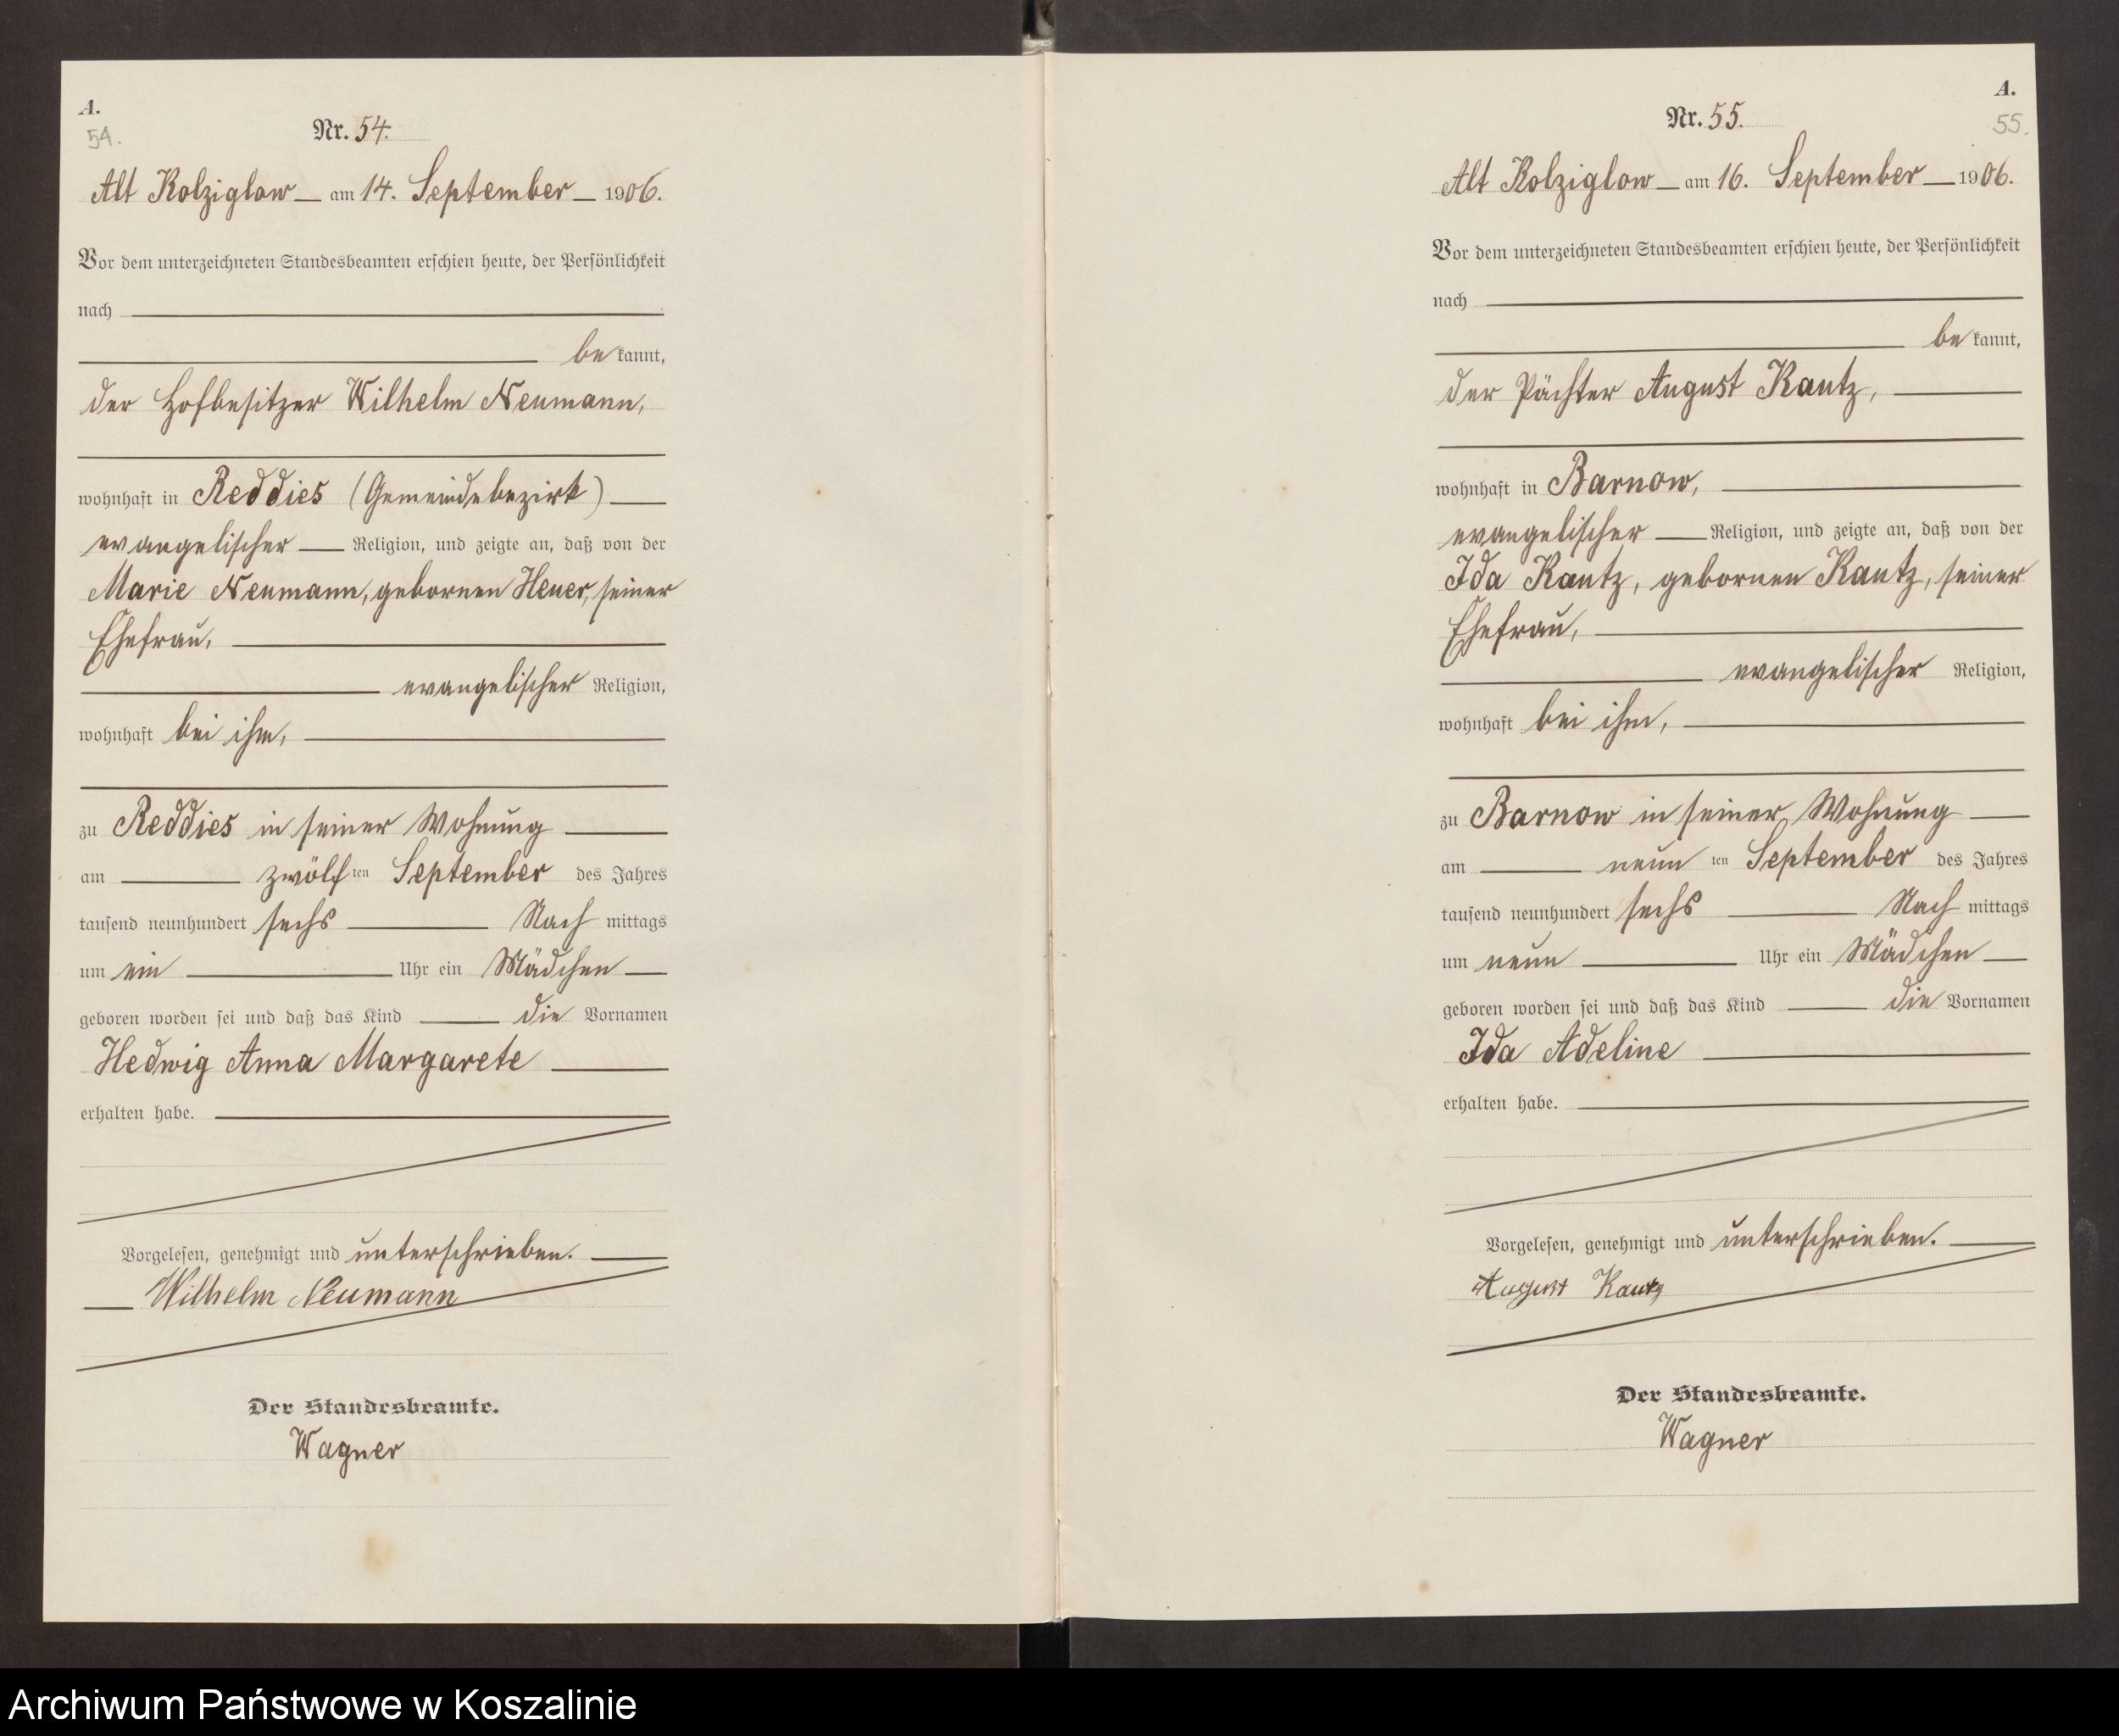 A.
54.
Nr. 54.
Alt Kolziglow am 14. September 1906.
Vor dem unterzeichneten Standesbeamten erschien heute, der Persönlichkeit
nach
be kannt,
der Hofbesitzer Wilhelm Neumann,
wohnhaft in Reddies (Gemeindebezirk)
evangelischer Religion, und zeigte an, daß von der
Marie Neumann, gebornen Heuer, seiner
Ehefrau,
evangelischer Religion,
wohnhaft bei ihm,
zu Reddies in seiner Wohnung
am zwölf ten September des Jahres
tausend neunhundert sechs Nach mittags
um ein Uhr ein Mädchen
geboren worden sei und daß das Kind die Vornamen
Hedwig Anna Margarete
erhalten habe.
Vorgelesen, genehmigt und unterschrieben.
Wilhelm Neumann
Der Standesbeamte.
Wagner
A.
55.
Nr. 55.
Alt Kolziglow am 16. September 1906.
Vor dem unterzeichneten Standesbeamten erschien heute, der Persönlichkeit
nach
be kannt,
der Pächter August Kautz,
wohnhaft in Barnow,
evangelischer Religion, und zeigte an, daß von der
Ida Kautz, gebornen Kautz, seiner
Ehefrau,
evangelischer Religion,
wohnhaft bei ihm,
zu Barnow in seiner Wohnung
am neun ten September des Jahres
tausend neunhundert sechs Nach mittags
um neun Uhr ein Mädchen
geboren worden sei und daß das Kind die Vornamen
Ida Adeline
erhalten habe.
Vorgelesen, genehmigt und unterschrieben.
August Kautz
Der Standesbeamte.
Wagner
Archiwum Państwowe w Koszalinie